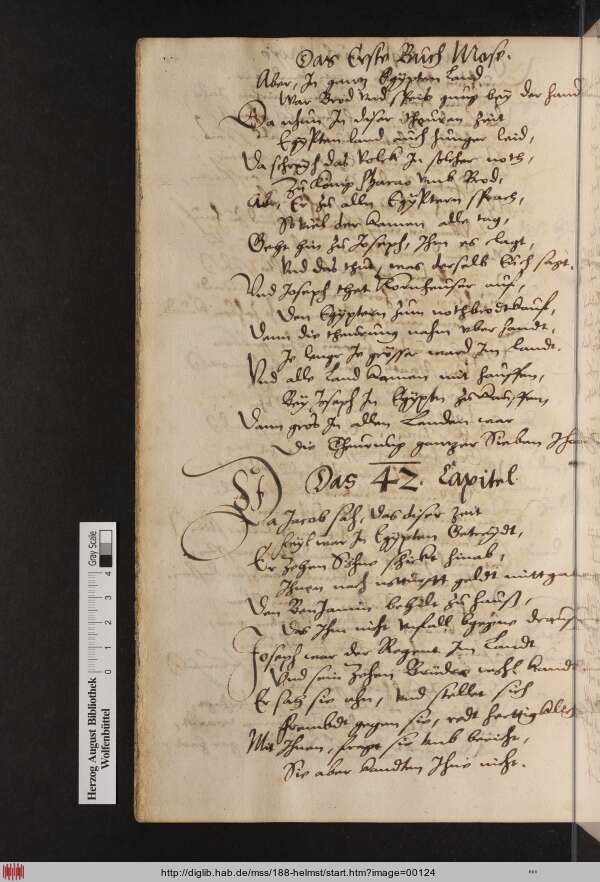 Das Erste Buch Mose.
Aber, In gantz Egypten Land,
War Brod Vnd speis gnug bey der hand
Da nhun In diser theuren Zeit
Egyptenland auch hunger leid,
Da schrey das Volck In solcher noth,
Zu König Pharao Vmb Brod,
Aber, Er zu alln Egyptern sprach,
So viel der kamen alle tag,
Geht hin zu Joseph, Ihm es clagt,
Vnd das thut, was derselb Euch sagt.
Vnd Joseph that Kornheuser auf,
Den Egyptern zum
Dann die theurung nahm vber handt,
Je lenger Je grösser ward Im landt.
Vnd alle Land kamen mit hauffen,
Bey Joseph In Egyptn zu kauffen,
Dann gros In allen Landen war
Die Theurung gantzer Sieben Jhar
Das 42. Capitel.
Da Jacob sah, das diser Zeit
feyl war In Egypten Getreydt,
Er Zehen Söhne schickt hinab,
Ihnen nach geldt mitt gab
Den BenJamin behelt zu hauß,
Das Ihm nicht Vnfall bgegne drauß
Joseph war der Regent Im Landt
Vnd sein Zehen Brüder wohl kandt
Er sah sie ahn, Vnd stellet sich
frembdt gegen sie, redt hertiglich
Mit Ihnen, fragt sie vmb bericht,
Sie aber kandten Ihne nicht.
Herzog August Bibliothek
Wolfenbüttel
0 1 2 3 4
Gray Scale
http://diglib.hab.de/mss/188-helmst/start.htm?image=00124